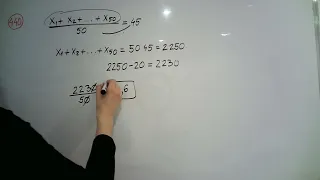 x₁ + x₂ + ... + x₅₀ / 50 = 45
x₁ + x₂ + ... + x₅₀ = 50·45 = 2250
2250 - 20 = 2230
2230 / 50 6